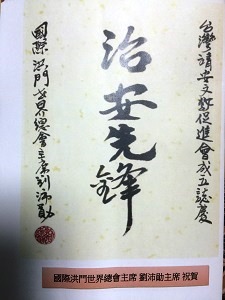 台灣靖安文教促進會成立誌慶
治安先鋒
國際洪門世界總會主席劉沛勛
國際洪門世界總會主席 劉沛勛主席 祝賀